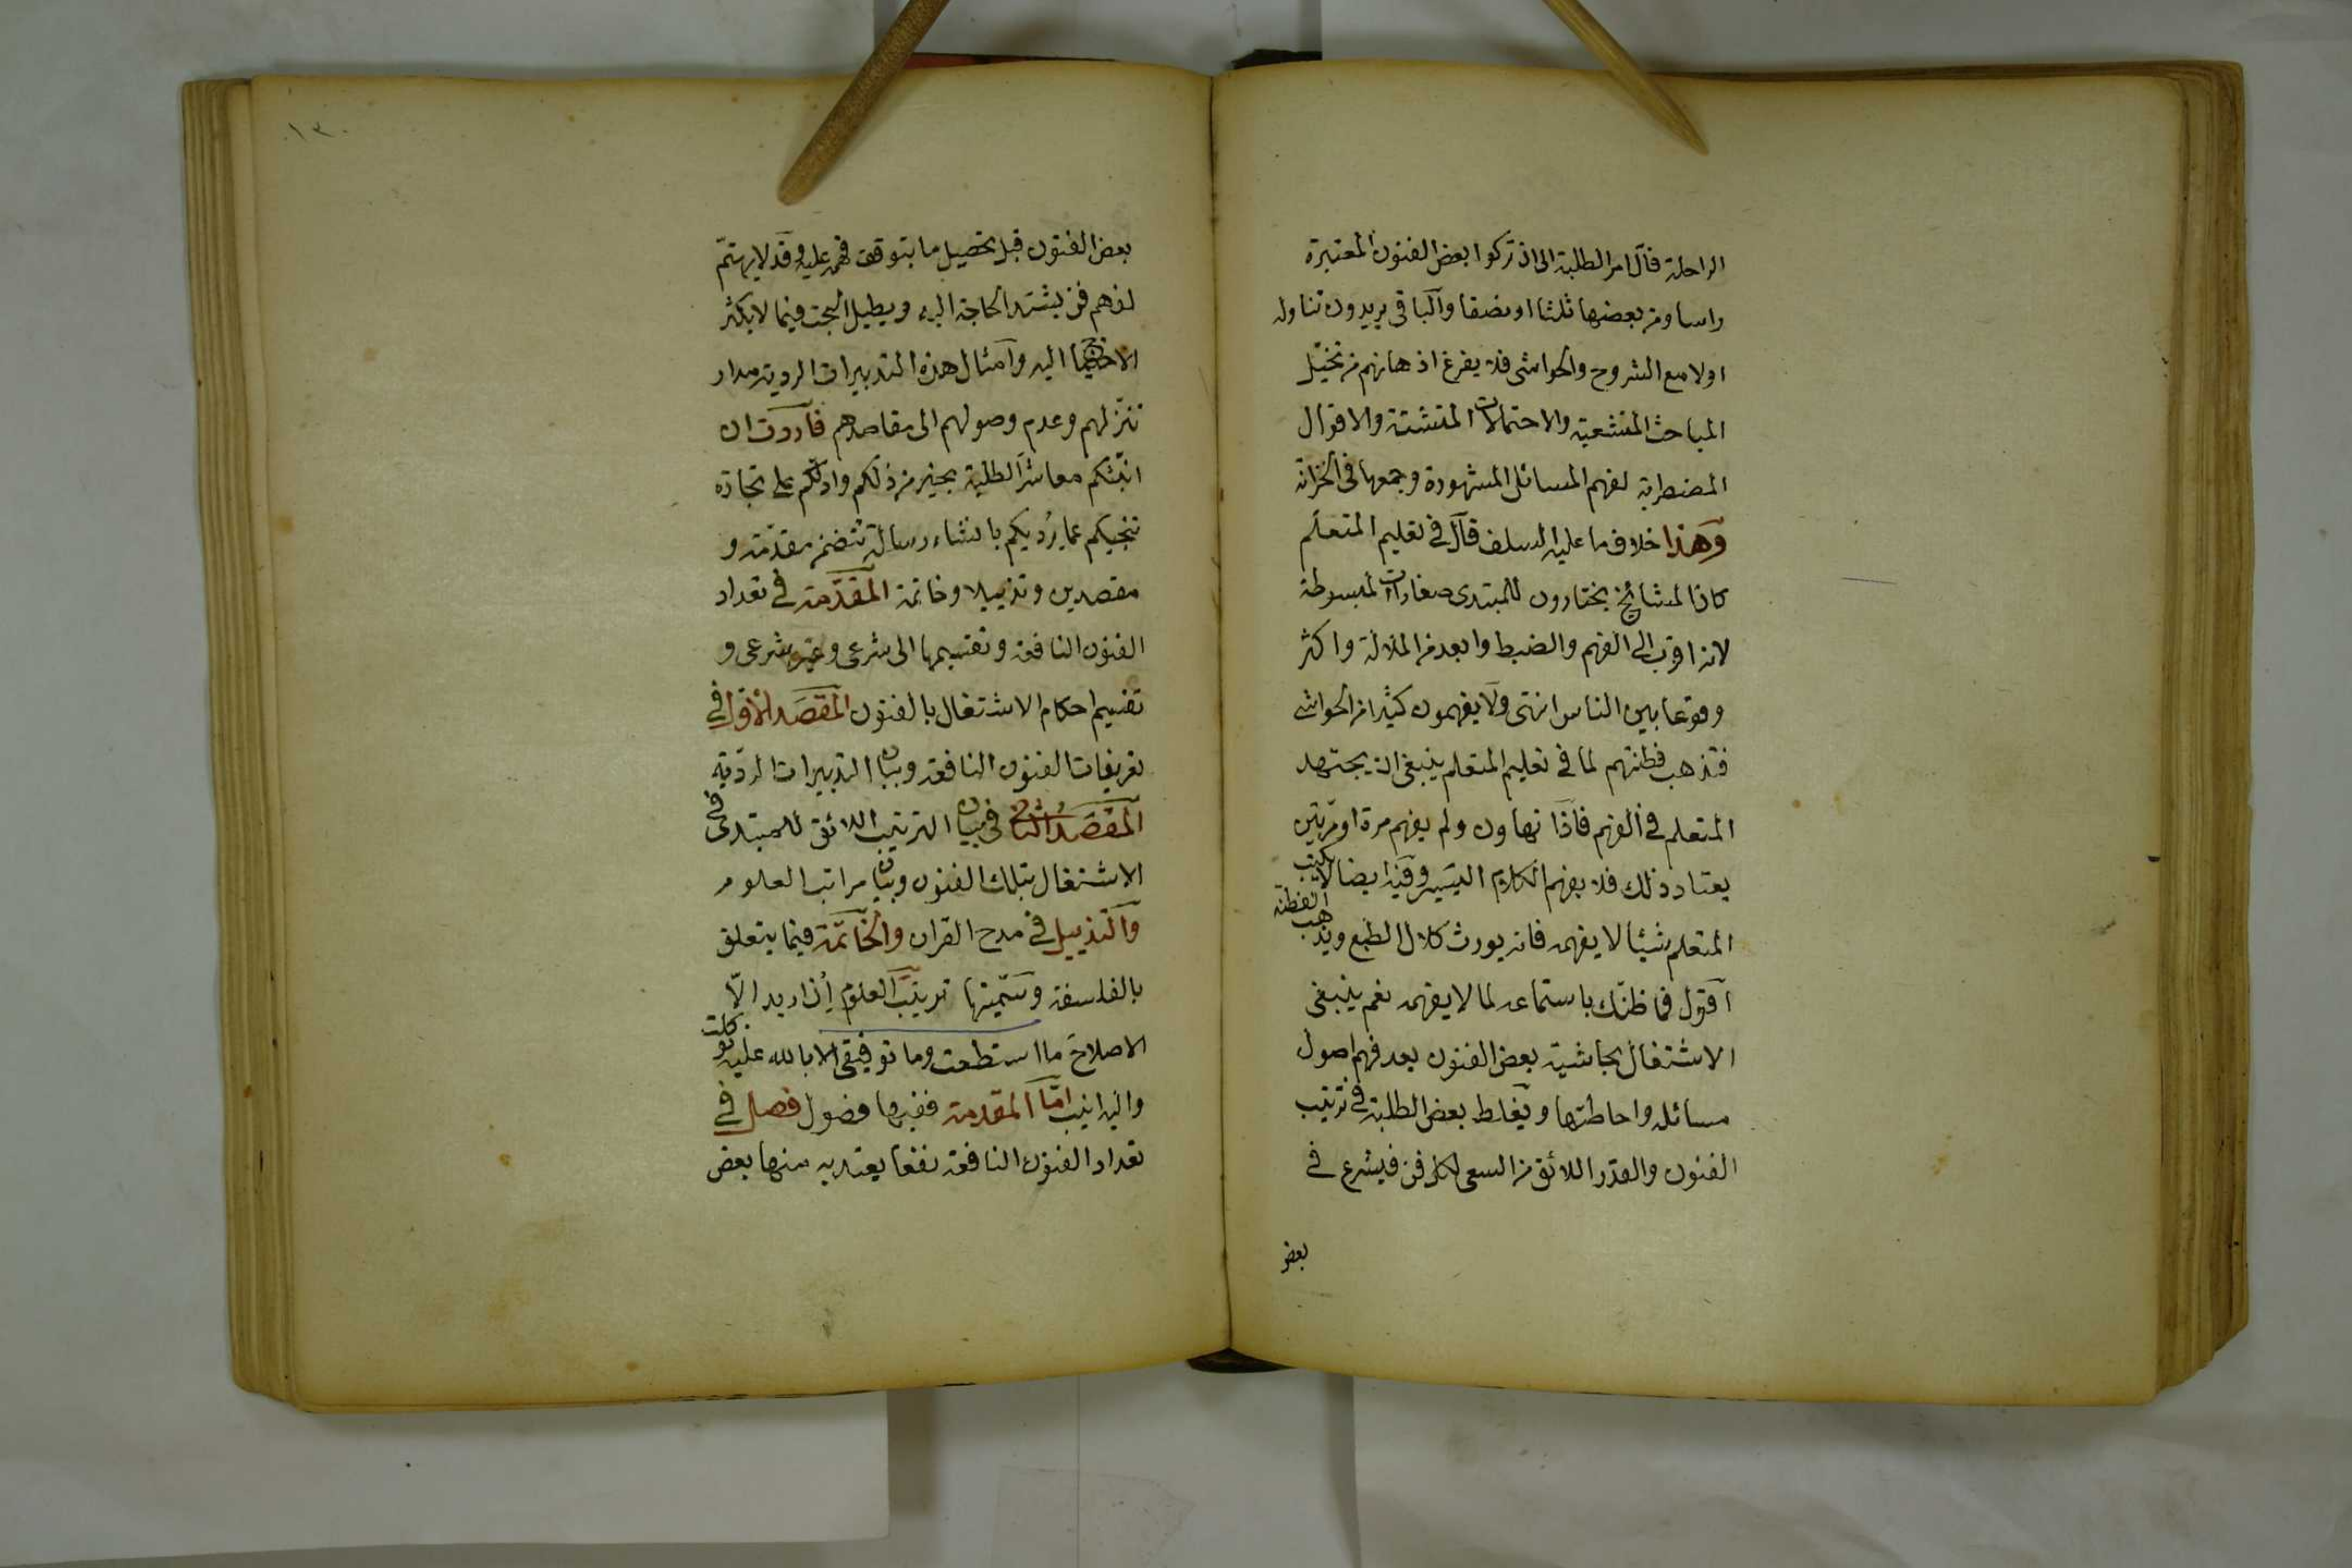 الراحلة فآل امر الطلبة الى ان تركوا بعض الفنون المعتبرة
راسا ومن بعضها ثلثا او نصفا والباقى يريدون تناوله
اولا مع الشروح والحواشى فلا يفرغ اذهانهم من تخيّل
المباحث المتشعبة والاحتمالات المتشتتة والاقوال
المضطربة لفهم المسائل المشهورة وجمعها فى الخزانة
وهذا خلاف ما عليه السلف قال فى تعليم المتعلم
كان المشائخ يختارون للمبتدى صغارات المبسوطة
لانه اقرب الى الفهم والضبط وابعد من الملالة واكثر
وقوعا بين الناس انتهى ولا يفهمون كثيرا من الحواشى
فتذهب فطنتهم لما فى تعليم المتعلم ينبغى ان يجتهد
المتعلم فى الفهم فاذا تهاون ولم يفهم مرة او مرّتين
يعتاد ذلك فلا يفهم الكلام اليسير وفيه ايضا لا يكتب
المتعلم شيئا لا يفهمه فانه يورث كلال الطبع ويذهب الفطنة
اقول فما ظنّك باستماعه لما لا يفهمه نعم ينبغى
الاشتغال بحاشية بعض الفنون بعد فهم اصول
مسائله واحاطتها ويغلط بعض الطلبة فى ترتيب
الفنون والقدر اللائق من السعى لكل فن فيشرع فى
بعض
١٣٠
بعض الفنون قبل تحصيل ما يتوقف فهمه عليه وقد لا يهتمّ
لفهم فن يشتد الحاجة اليه ويطيل البحث فيما لا يكثر
الاحتياج اليه وامثال هذه التدبيرات الردية مدار
تنزلهم وعدم وصولهم الى مقاصدهم فاردت ان
انبّئكم معاشر الطلبة بخير من ذلكم وادلكم على تجارة
تنجيكم عما يُرديكم بانشاء رسالة تتضمن مقدّمة و
مقصدين وتذييلا وخاتمة المقدّمة فى تعداد
الفنون النافعة وتقسيمها الى شرعى وغير شرعى و
تقسيم احكام الاشتغال بالفنون المقصد الاول فى
تعريفات الفنون النافعة وبيان التدبيرات الرديّة
المقصد الثانى فى بيان الترتيب اللائق للمبتدى فى
الاشتغال بتلك الفنون وبيان مراتب العلوم
والتذييل فى مدح القران والخاتمة فيما يتعلق
بالفلسفة وسمّيتها ترتيب العلوم اِن اريد الّا
الاصلاح ما استطعت وما توفيقى الا بالله عليه توكلت
واليه انيب امّا المقدمة ففيها فصول فصل فى
تعداد الفنون النافعة نفعا يعتد به منها بعض